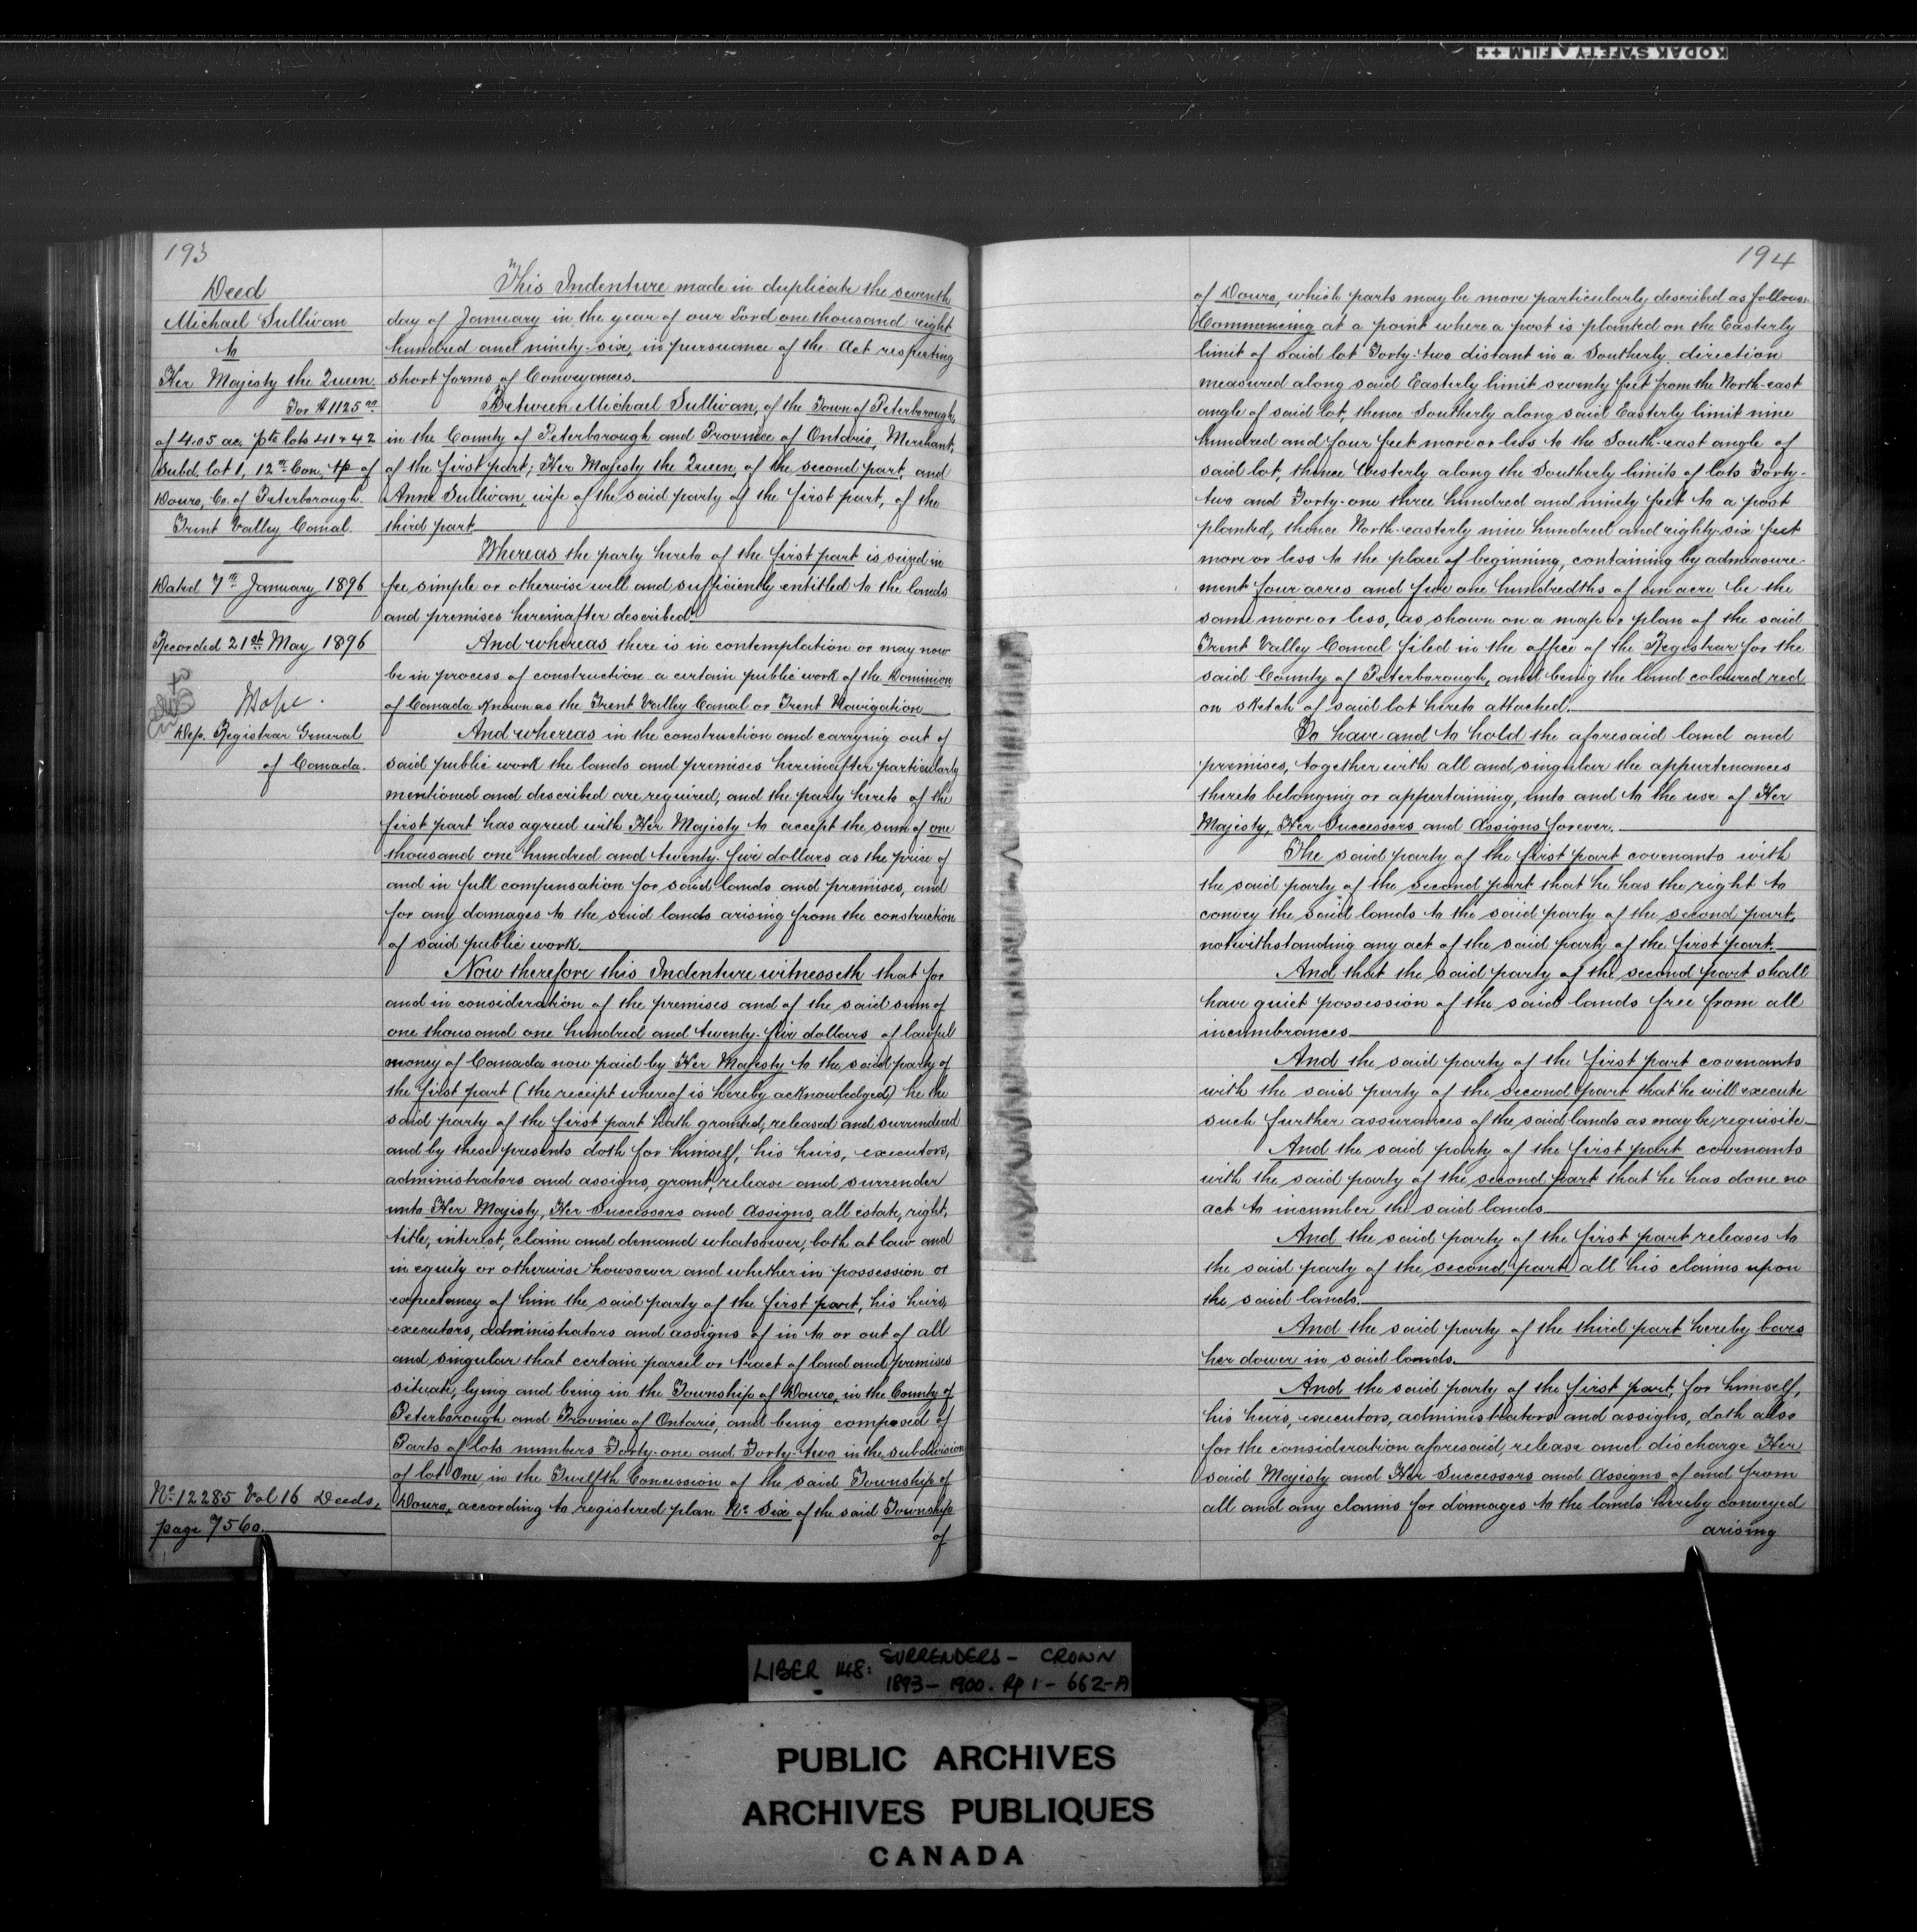 KODAK SAFETY FILM ++
193
Deed
Michael Sullivan
to
Her Majesty the Queen.
For $1125 00
of 4.05 ac. pts lots 41 & 42
Subd. lot 1, 12th Con. tp of
Douro, Co. of Peterborough.
Trent Valley Canal.
Dated 7th January 1896
Recorded 21st May 1896
Dep. Registrar General
of Canada.
No 12285 Vol 16 Deeds,
page 7560.
This Indenture made in duplicate the seventh
day of January in the year of our Lord one thousand eight
hundred and ninety-six, in pursuance of the Act respecting
short forms of Conveyances.
Between Michael Sullivan, of the Town of Peterborough,
in the County of Peterborough and Province of Ontario, Merchant,
of the first part; Her Majesty the Queen, of the second part, and
Anne Sullivan, wife of the said party of the first part, of the
third part.
Whereas the party hereto of the first part is seized in
fee simple or otherwise well and sufficiently entitled to the lands
and premises hereinafter described.
And whereas there is in contemplation or may now
be in process of construction a certain public work of the Dominion
of Canada known as the Trent Valley Canal or Trent Navigation
And whereas in the construction and carrying out of
said public work the lands and premises hereinafter particularly
mentioned and described are required, and the party hereto of the
first part has agreed with Her Majesty to accept the sum of one
thousand one hundred and twenty-five dollars as the price of
and in full compensation for said lands and premises, and
for any damages to the said lands arising from the construction
of said public work.
Now therefore this Indenture witnesseth that for
and in consideration of the premises and of the said sum of
one thousand one hundred and twenty-five dollars of lawful
money of Canada now paid by Her Majesty to the said party of
the first part (the receipt whereof is hereby acknowledged) he the
said party of the first part hath granted, released and surrendered
and by these presents doth for himself, his heirs, executors,
administrators and assigns, grant, release and surrender
unto Her Majesty, Her Successors and Assigns, all estate, right,
title, interest, claim and demand whatsoever, both at law and
in equity or otherwise howsoever and whether in possession or
expectancy of him the said party of the first part, his heirs,
executors, administrators and assigns of in to or out of all
and singular that certain parcel or tract of land and premises
situate, lying and being in the Township of Douro, in the County of
Peterborough and Province of Ontario, and being composed of
Parts of lots numbers Forty-one and Forty-two in the subdivision
of lot One, in the Twelfth Concession of the said Township of
Douro, according to registered plan No Six of the said Township
of
194
of Douro, which parts may be more particularly described as follows:
Commencing at a point where a post is planted on the Easterly
limit of said lot Forty-two distant in a Southerly direction
measured along said Easterly limit seventy feet from the North-east
angle of said lot, thence Southerly along said Easterly limit nine
hundred and four feet more or less to the South-east angle of
said lot, thence Westerly along the Southerly limits of lots Forty-
two and Forty-one three hundred and ninety feet to a post
planted, thence North-easterly nine hundred and eighty-six feet
more or less to the place of beginning, containing by admeasure-
ment four acres and five one hundredths of an acre be the
same more or less, as shown on a map or plan of the said
Trent Valley Canal filed in the office of the Registrar for the
said County of Peterborough, and being the land coloured red
on sketch of said lot hereto attached.
To have and to hold the aforesaid land and
premises, together with all and singular the appurtenances
thereto belonging or appertaining, unto and to the use of Her
Majesty, Her Successors and Assigns forever.
The said party of the first part covenants with
the said party of the second part that he has the right to
convey the said lands to the said party of the second part,
notwithstanding any act of the said party of the first part.
And that the said party of the second part shall
have quiet possession of the said lands free from all
incumbrances
And the said party of the first part covenants
with the said party of the second part that he will execute
such further assurances of the said lands as may be requisite
And the said party of the first part covenants
with the said party of the second part that he has done no
act to incumber the said lands
And the said party of the first part releases to
the said party of the second part all his claims upon
the said lands.
And the said party of the third part hereby bars
her dower in said lands.
And the said party of the first part, for himself,
his heirs, executors, administrators and assigns, doth also
for the consideration aforesaid, release and discharge Her
said Majesty and Her Successors and Assigns of and from
all and any claims for damages to the lands hereby conveyed
arising
LIBER 148: SURRENDERS - CROWN
1893 - 1900. Pp 1 - 662-A
PUBLIC ARCHIVES
ARCHIVES PUBLIQUES
CANADA